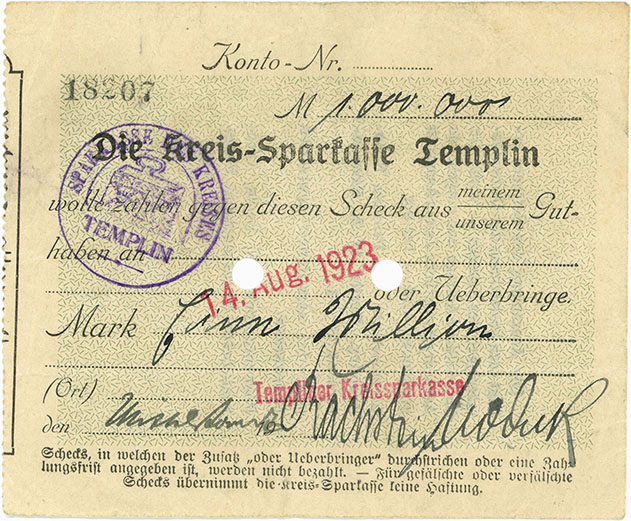 Konto-Nr.
18207
M 1.000.000
Die Kreis-Sparkasse Templin
SPARKASSE DES KREISES
TEMPLIN
wolle zahlen gegen diesen Scheck aus meinem Gut-
unserem
haben an
14. Aug. 1923
oder Ueberbringe.
Mark Eine Million
Templiner Kreissparkasse
(Ort)
den
Schecks, in welchen der Zusatz „oder Ueberbringer" durchstrichen oder eine Zah-
lungsfrist angegeben ist, werden nicht bezahlt. — Für gefälschte oder verfälschte
Schecks übernimmt die Kreis-Sparkasse keine Haftung.